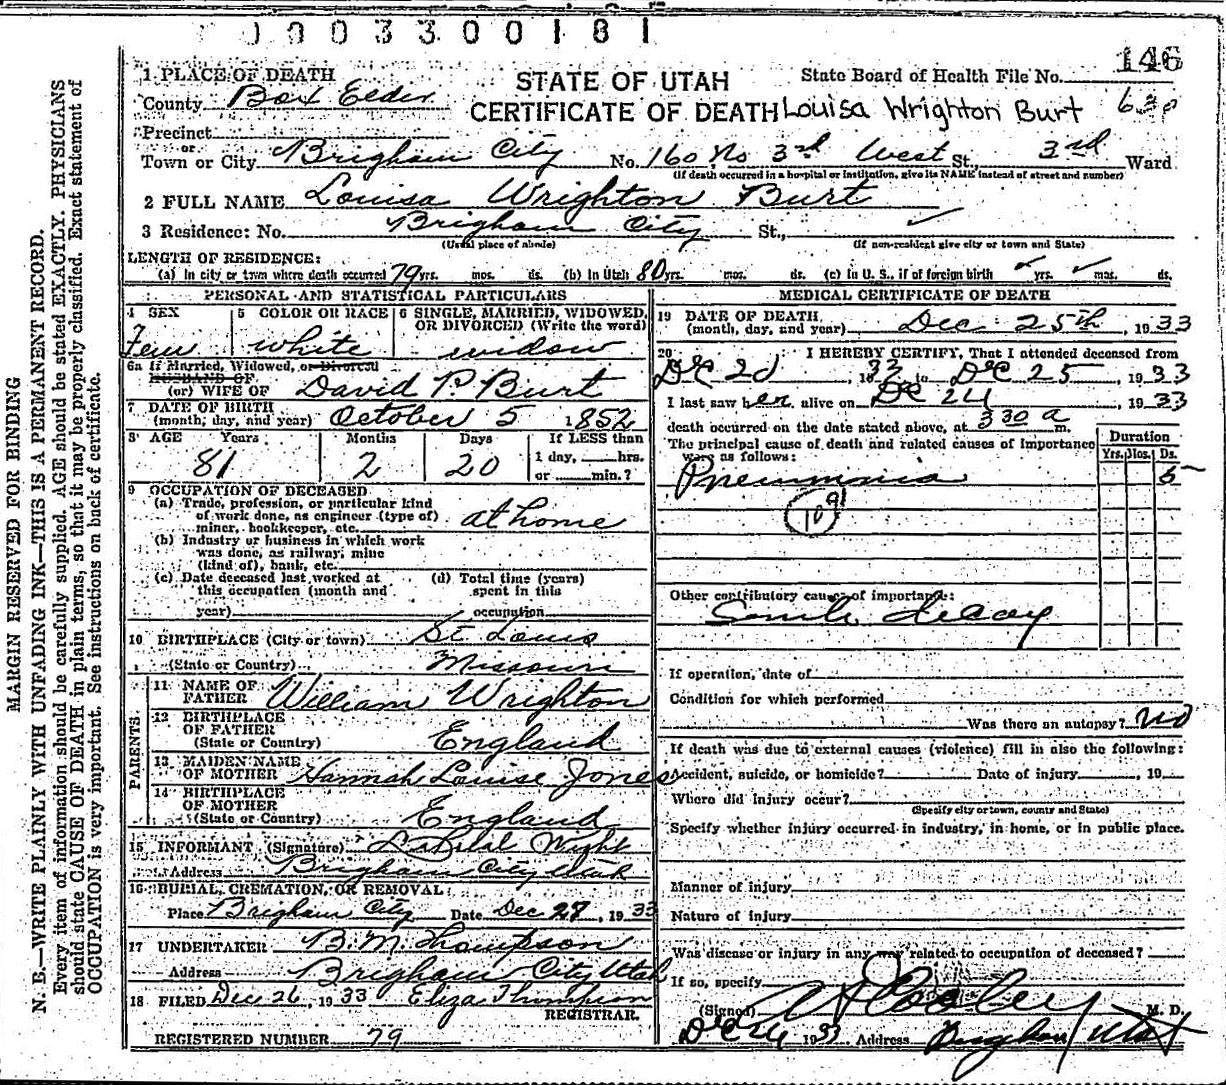 0003300181
146
1 PLACE OF DEATH
STATE OF UTAH
State Board of Health File No.
County Box Elder
CERTIFICATE OF DEATH Louisa Wrighton Burt
Precinct
or
Town or City Brigham City No. 160 No 3rd West St., 3rd Ward
(If death occurred in a hospital or institution, give its NAME instead of street and number)
2 FULL NAME Louisa Wrighton Burt
3 Residence: No. Brigham City St.,
(Usual place of abode) (If non-resident give city or town and State)
LENGTH OF RESIDENCE:
(a) In city or town where death occurred 79 yrs. mos. ds. (b) In Utah 80 yrs. mos. ds. (c) In U. S., if of foreign birth yrs. mos. ds.
PERSONAL AND STATISTICAL PARTICULARS
4 SEX 5 COLOR OR RACE 6 SINGLE, MARRIED, WIDOWED, OR DIVORCED (Write the word)
Fem white widow
6a If Married, Widowed, or Divorced
HUSBAND OF
(or) WIFE OF David P. Burt
7 DATE OF BIRTH
(month, day, and year) October 5 1852
8 AGE Years Months Days If LESS than
1 day, hrs.
81 2 20 or min.?
9 OCCUPATION OF DECEASED
(a) Trade, profession, or particular kind
of work done, as engineer (type of)
miner, bookkeeper, etc. at home
(b) Industry or business in which work
was done, as railway, mine
(kind of), bank, etc.
(c) Date deceased last worked at
this occupation (month and
year)
(d) Total time (years)
spent in this
occupation
10 BIRTHPLACE (City or town) St Louis
(State or Country) Missouri
PARENTS
11 NAME OF
FATHER William Wrighton
12 BIRTHPLACE
OF FATHER
(State or Country) England
13 MAIDEN NAME
OF MOTHER Hannah Louise Jones
14 BIRTHPLACE
OF MOTHER
(State or Country) England
15 INFORMANT (Signature) Wight
Address Brigham City Utah
16 BURIAL, CREMATION, OR REMOVAL
Place Brigham City Date Dec 27, 1933
17 UNDERTAKER B. M. Thompson
Address Brigham City Utah
18 FILED Dec 26, 1933 Eliza Thompson
REGISTRAR.
REGISTERED NUMBER 79
MEDICAL CERTIFICATE OF DEATH
19 DATE OF DEATH
(month, day, and year) Dec 25th, 1933
20 I HEREBY CERTIFY, That I attended deceased from
Dec 20, 1933 to Dec 25, 1933
I last saw her alive on Dec 24, 1933
death occurred on the date stated above, at 330 a m.
The principal cause of death and related causes of Importance
were as follows:
Duration
Yrs. Mos. Ds.
Pneumonia 5
Other contributory causes of importance:
Senile decay
If operation, date of
Condition for which performed
Was there an autopsy? no
If death was due to external causes (violence) fill in also the following:
Accident, suicide, or homicide? Date of injury, 19
Where did injury occur?
(Specify city or town, county and State)
Specify whether injury occurred in industry, in home, or in public place.
Manner of injury
Nature of injury
Was disease or injury in any way related to occupation of deceased?
If so, specify
(Signed) Cooley M. D.
Dec 26 1933 Address Brigham Utah
MARGIN RESERVED FOR BINDING
N. B.—WRITE PLAINLY WITH UNFADING INK—THIS IS A PERMANENT RECORD.
Every item of information should be carefully supplied. AGE should be stated EXACTLY. PHYSICIANS
should state CAUSE OF DEATH in plain terms, so that it may be properly classified. Exact statement of
OCCUPATION is very important. See instructions on back of certificate.